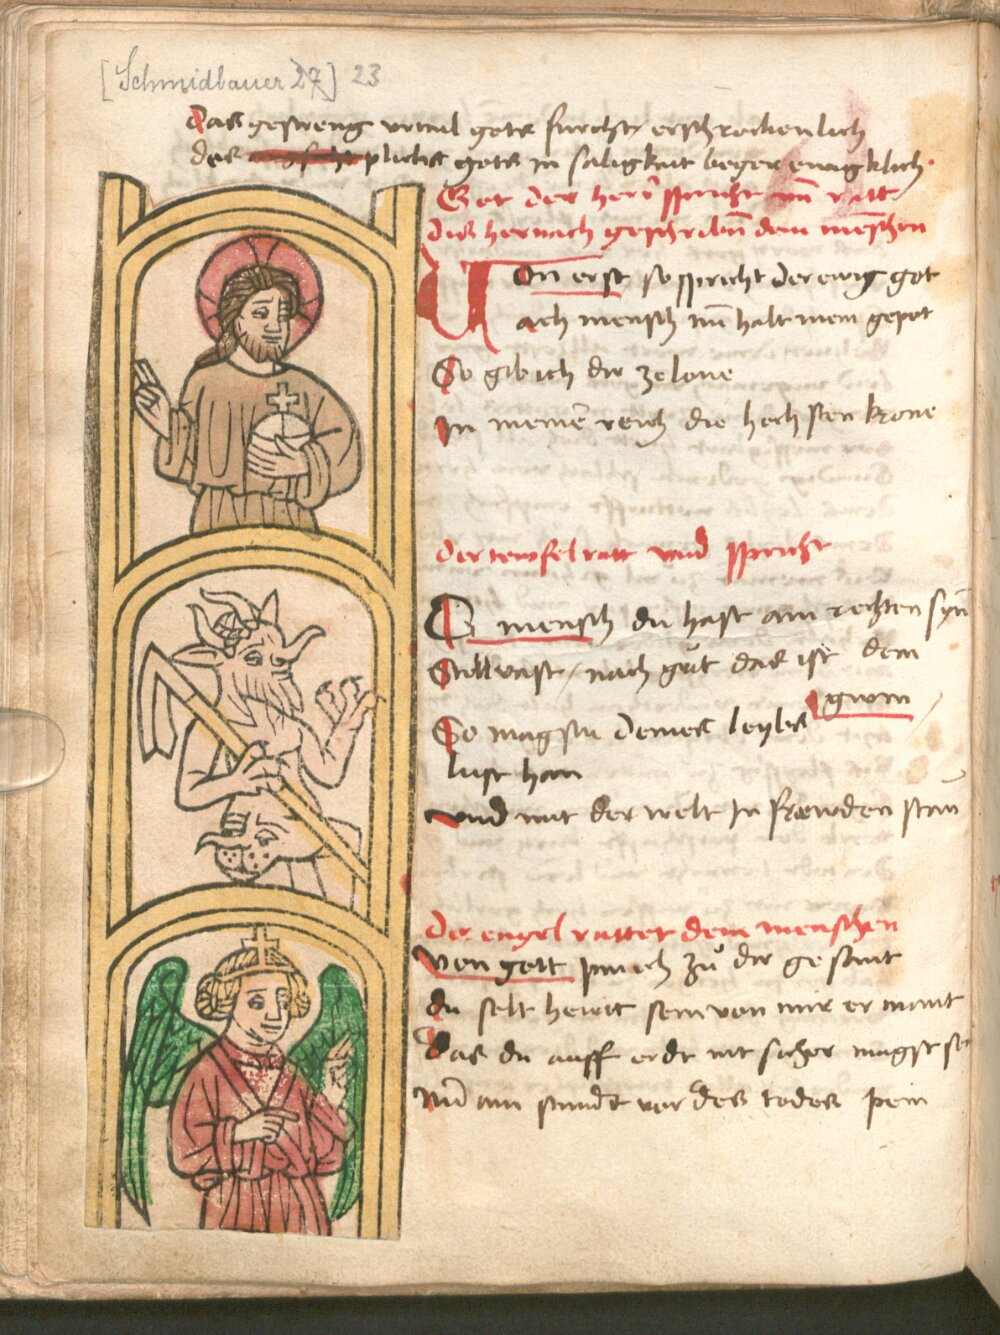 [Schmidbauer 27] 23
Das gestreng urtail gots furcht erschrockenlich
das plicks gots in saligkait beger ewigklich
Got der herr spricht und ratt
dis hernach geschriben dem menschen
Von erst so spricht der ewig got
ach mensch nu halt mein gepot
So gib ich dir ze lone
In meinē reich die hochsten krone
der tewfel ratt vnd spricht
O mensch du hast ain rechten syn
Stell vast / nach gut das ist dein
gwin
So magstu deines leybs
lust han
vnd mit der welt In frewden stan
der engel rattet dem menschen
von gott pin ich zů dir gesant
du solt hewt sein von mir ermant
das du auff erdt nit sicher magst sei
Nu ain stundt vor des todes pein